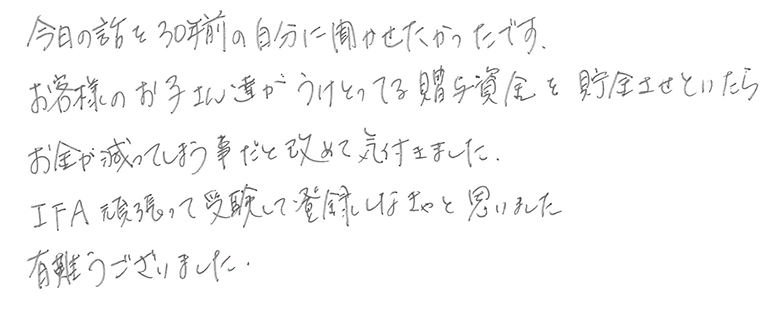 今日の話を30年前の自分に聞かせたかったです.
お客様のお子さん達がうけとってる贈与資金を貯金させといたら
お金が減ってしまう事だと改めて気付きました.
IFA頑張って受験して登録しなきゃと思いました
有難うございました.